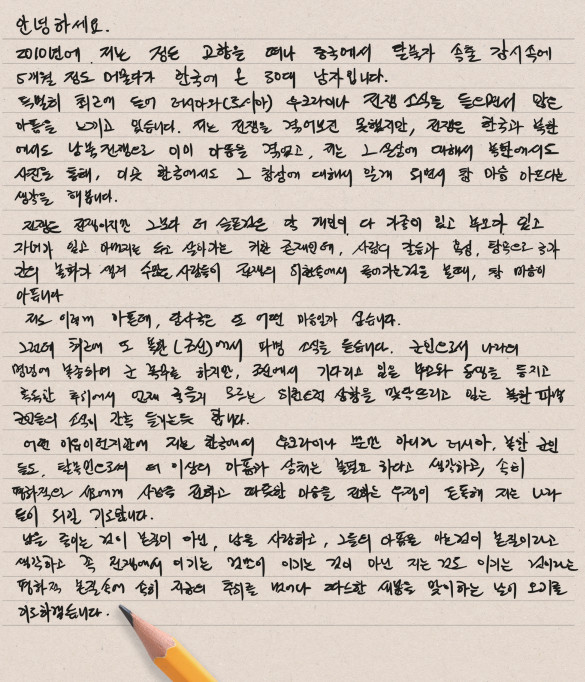 안녕하세요.
2010년에 저는 정든 고향을 떠나 중국에서 탈북자 속출 감시속에
5개월 정도 머물다가 한국에 온 30대 남자입니다.
특별히 최근에 들어 러시아와(로시아) 우크라이나 전쟁 소식을 들으면서 많은
아픔을 느끼고 있습니다. 저는 전쟁을 겪어보진 못했지만, 전쟁은 한국과 북한
에서도 남북전쟁으로 이미 아픔을 겪었고, 저는 그 실상에 대해서 북한에서도
사진을 통해, 이곳 한국에서도 그 참상에 대해서 알게 되면서 참 마음 아프다는
생각을 해봅니다.
전쟁은 전쟁이지만 그보다 더 슬픈것은 각 개인이 다 가정이 있고 부모가 있고
자녀가 있고 아버지를 두고 살아가는 귀한 존재인데, 사람의 갈등과 욕심, 탐욕으로 국가
간의 불화가 생겨 수많은 사람들이 전쟁의 위험속에서 죽어가는것을 볼때, 참 마음이
아픕니다
저도 이렇게 아픈데, 당사국은 또 어떤 마음일까 싶습니다.
그런데 최근에 또 북한(조선)에서 파병 소식을 듣습니다. 군인으로서 나라의
명령에 복종하여 군 복무를 하지만, 조선에서 기다리고 있을 부모와 동생을 등지고
혹독한 추위에서 언제 죽을지 모르는 위험천만 상황을 맞닥뜨리고 있는 북한 파병
군인들의 소식이 간혹 들리는듯 합니다.
어떤 이유이전지간에 저는 한국에서 우크라이나 뿐만 아니라 러시아, 북한 군인
들도, 탈북민으로서 더 이상의 아픔과 상처는 불필요 하다고 생각하고, 속히
평화적으로 서로에게 사랑을 전하고 따뜻한 마음을 전하는 우정이 돈독해 지는 나라
들이 되길 기도합니다.
남을 죽이는 것이 본질이 아닌, 남을 사랑하고, 그들의 아픔을 아는것이 본질이라고
생각하고 꼭 전쟁에서 이기는 것만이 이기는 것이 아닌 지는것도 이기는 것이라는
평화적 본질속에 속히 지금의 추위를 벗어나 따스한 새봄을 맞이하는 날이 오기를
기도하겠습니다.